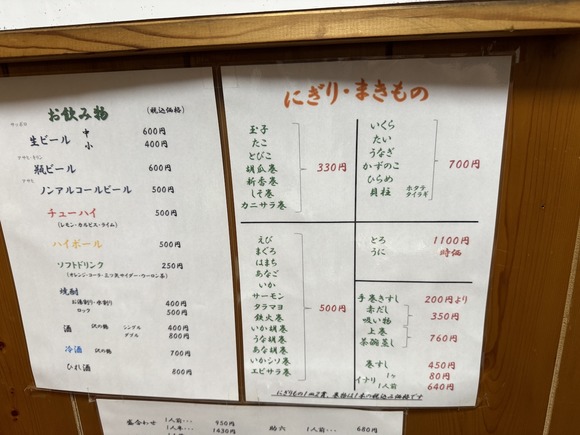 お飲み物 (税込価格)
サッポロ
生ビール 中 600円
小 400円
アサヒ・キリン
瓶ビール 600円
アサヒ
ノンアルコールビール 500円
チューハイ 500円
(レモン・カルピス・ライム)
ハイボール 500円
ソフトドリンク 250円
(オレンジ・コーラ・三ツ矢サイダー・ウーロン茶)
焼酎
お湯割り・水割り 400円
ロック 500円
酒 沢の鶴 シングル 400円
ダブル 800円
冷酒 沢の鶴 700円
ひれ酒 800円
にぎり・まきもの
玉子
たこ
とびこ
胡瓜巻
新香巻
しそ巻
カニサラ巻
330円
いくら
たい
うなぎ
かずのこ
ひらめ
貝柱 ホタテ
タイラギ
700円
えび
まぐろ
はまち
あなご
いか
サーモン
タラマヨ
鉄火巻
いか胡巻
うな胡巻
あな胡巻
イカシソ巻
エビサラ巻
500円
とろ 1100円
うに 時価
手巻きすし 200円より
赤だし
吸い物
350円
上巻
茶碗蒸し
760円
巻すし 450円
イナリ 1ヶ 80円
1人前 640円
にぎりもの1皿2貫、巻物は1本の税込み価格です
盛合わせ 1人前・・・ 950円
1人半・・・ 1430円
助六 1人前・・・ 680円